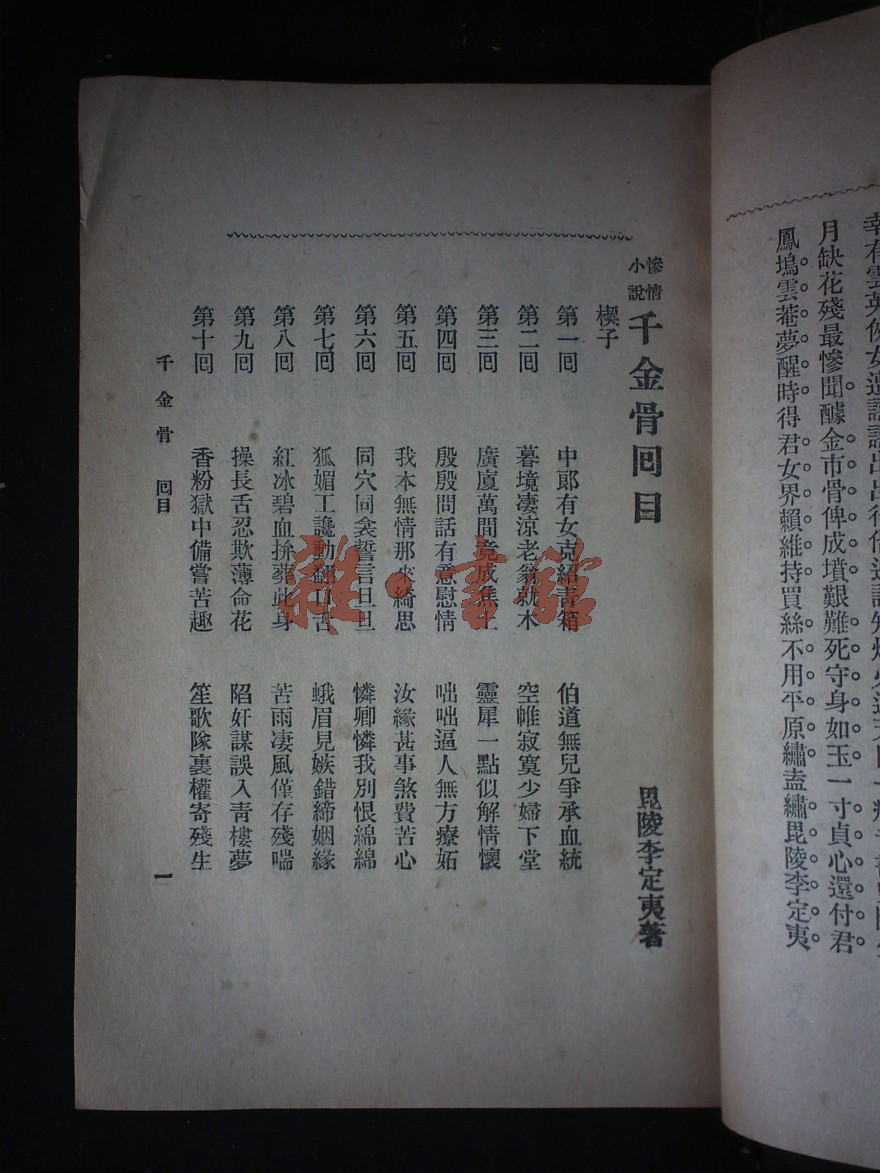 幸有雲英俠女遺
月缺花殘最慘聞醵金市骨俾成墳艱難死守身如玉一寸貞心還付君
鳳塢雲菴夢醒時得君女界賴維持買絲不用平原繡盍繡毘陵李定夷
慘情小說 千金骨囘目 毘陵李定夷著
楔子
第一囘 中郞有女克紹書箱 伯道無兒爭承血統
第二囘 暮境凄涼老翁就木 空帷寂寞少婦下堂
第三囘 廣廈萬間竟成焦土 靈犀一點似解情懷
第四囘 殷殷問話有意慰情 咄咄逼人無方療妬
第五囘 我本無情那來綺思 汝緣甚事煞費苦心
第六囘 同穴同衾誓言旦旦 憐卿憐我別恨綿綿
第七囘 狐媚工讒動 舌 蛾眉見嫉錯締姻緣
第八囘 紅冰碧血拚葬此身 苦雨凄風僅存殘喘
第九囘 操長舌忍欺薄命花 陷奸謀誤入靑樓夢
第十囘 香粉獄中備嘗苦趣 笙歌隊裏權寄殘生
千金骨 囘目 一
雜·書館